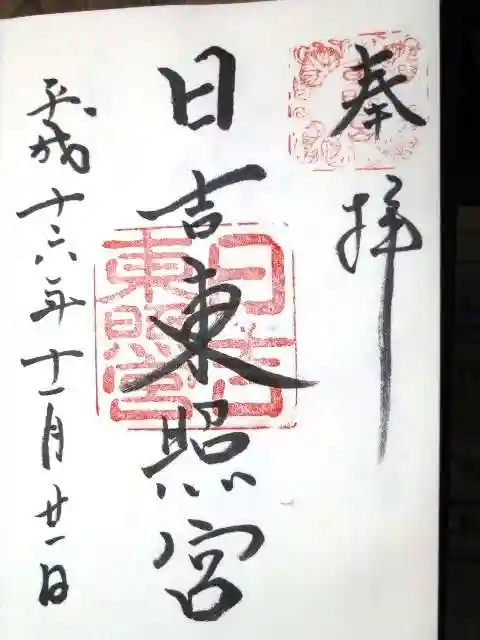 奉拝
日吉東照宮
日吉
東照宮
平成十六年十一月廿一日